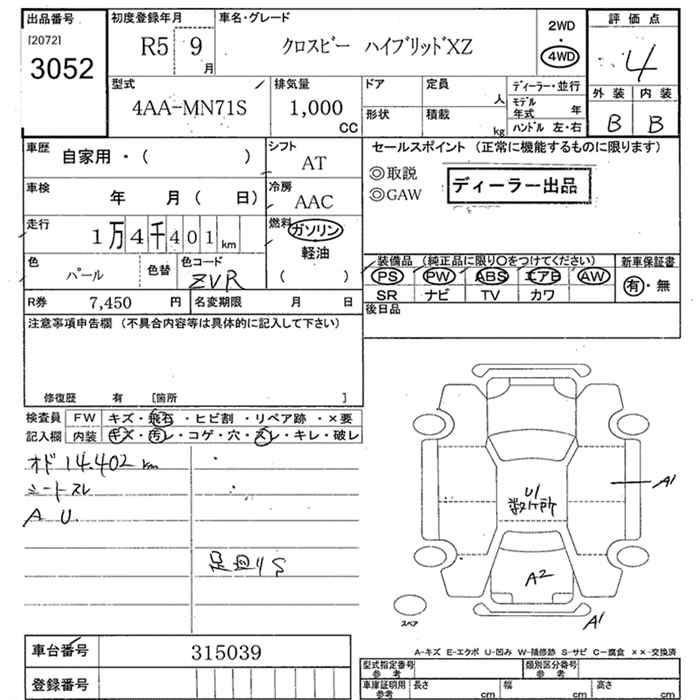 出品番号
[2072]
3052
初度登録年月
R5 9月
車名・グレード
クロスビー ハイブリッドXZ
2WD
・
4WD
評価点
4
外装 内装
B B
型式
4AA-MN71S
排気量
1,000
CC
ドア
定員
人
形状
積載
kg
ディーラー・並行
モデル年式 年
ハンドル 左・右
車歴
自家用・( )
シフト
AT
車検
年 月( 日)
冷房
AAC
走行
1万4千401km
燃料
ガソリン
軽油
( )
色
パール
色替
色コード
ZVR
R券
7,450 円
名変期限 月 日
セールスポイント (正常に機能するものに限ります)
◎取説
◎GAW
ディーラー出品
装備品 (純正品に限り〇をつけてください)
PS PW ABS エアB AW
SR ナビ TV カワ
新車保証書
有・無
後日品
注意事項申告欄 (不具合内容等は具体的に記入して下さい)
修復歴 有 [箇所 ]
検査員
記入欄
FW キズ・飛石・ヒビ割・リペア跡・×要
内装 キズ・汚レ・コゲ・穴・スレ・キレ・破レ
オド 14.402 km
シートスレ
A U.
足廻リS
U1
数ケ所
A1
A2
A1
スペア
A-キズ E-エクボ U-凹み W-補修跡 S-サビ C-腐食 ××-交換済
車台番号
315039
登録番号
型式指定番号
参考
類別区分番号
参考
車庫証明用
参考
長さ cm
幅 cm
高さ cm